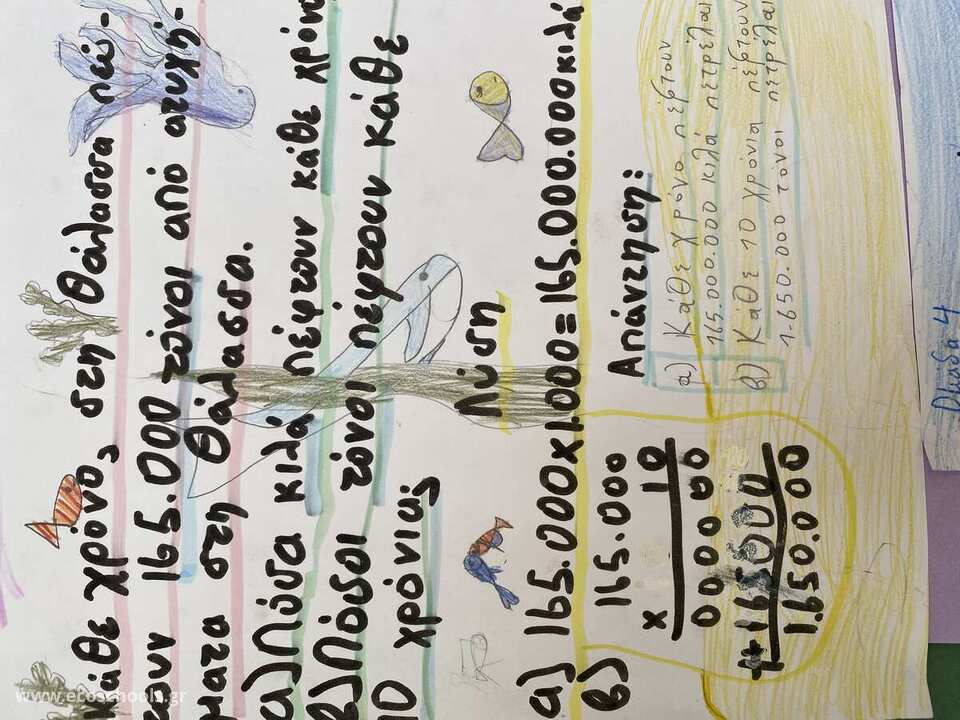 άθε χρόνο, στη θάλασσα πέφ-
τουν 165.000 τόνοι από ατυχή-
ματα στη θάλασσα.
α) Πόσα κιλά πέφτουν κάθε χρόνο
β) Πόσοι τόνοι πέφτουν κάθε
10 χρόνια;
Λύση
α) 165.000x1.000=165.000.000κιλά
β) 165.000
x 10
000000
+165000
1.650.000
Απάντηση:
α) Κάθε χρόνο πέφτουν
165.000.000 κιλά πετρέλαι
β) Κάθε 10 χρόνια πέφτουν
1.650.000 τόνοι πετρέλαι
Ομάδα 4
www.ecoschools.gr